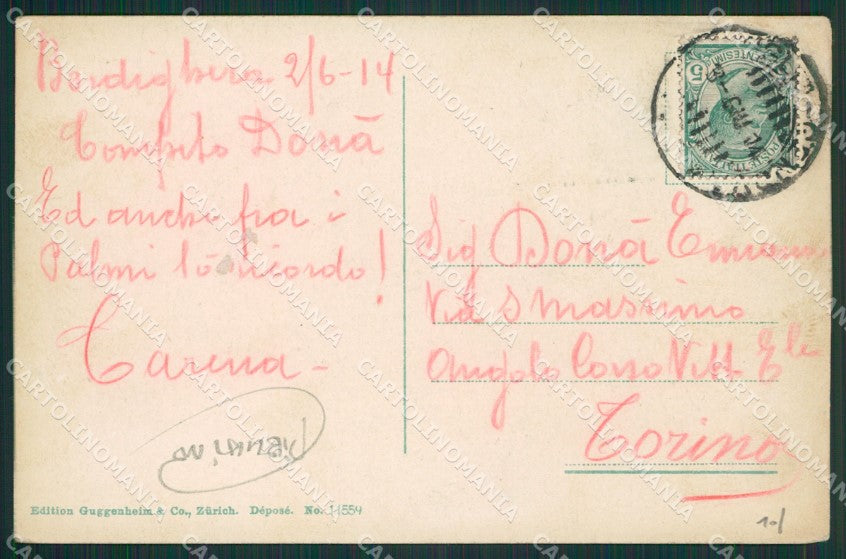 Bordighera 2/6-14
Compito Donà
Ed anche fra i
Palmi lo ricordo!
Carena -
Sig Donà
Via S Massimo
Angolo Corso Vitt. Ele
Torino
Edition Guggenheim & Co., Zürich. Déposé. No. 11554
10/
CENTESIMI 5
POSTE ITALIANE
CARTOLINOMANIA